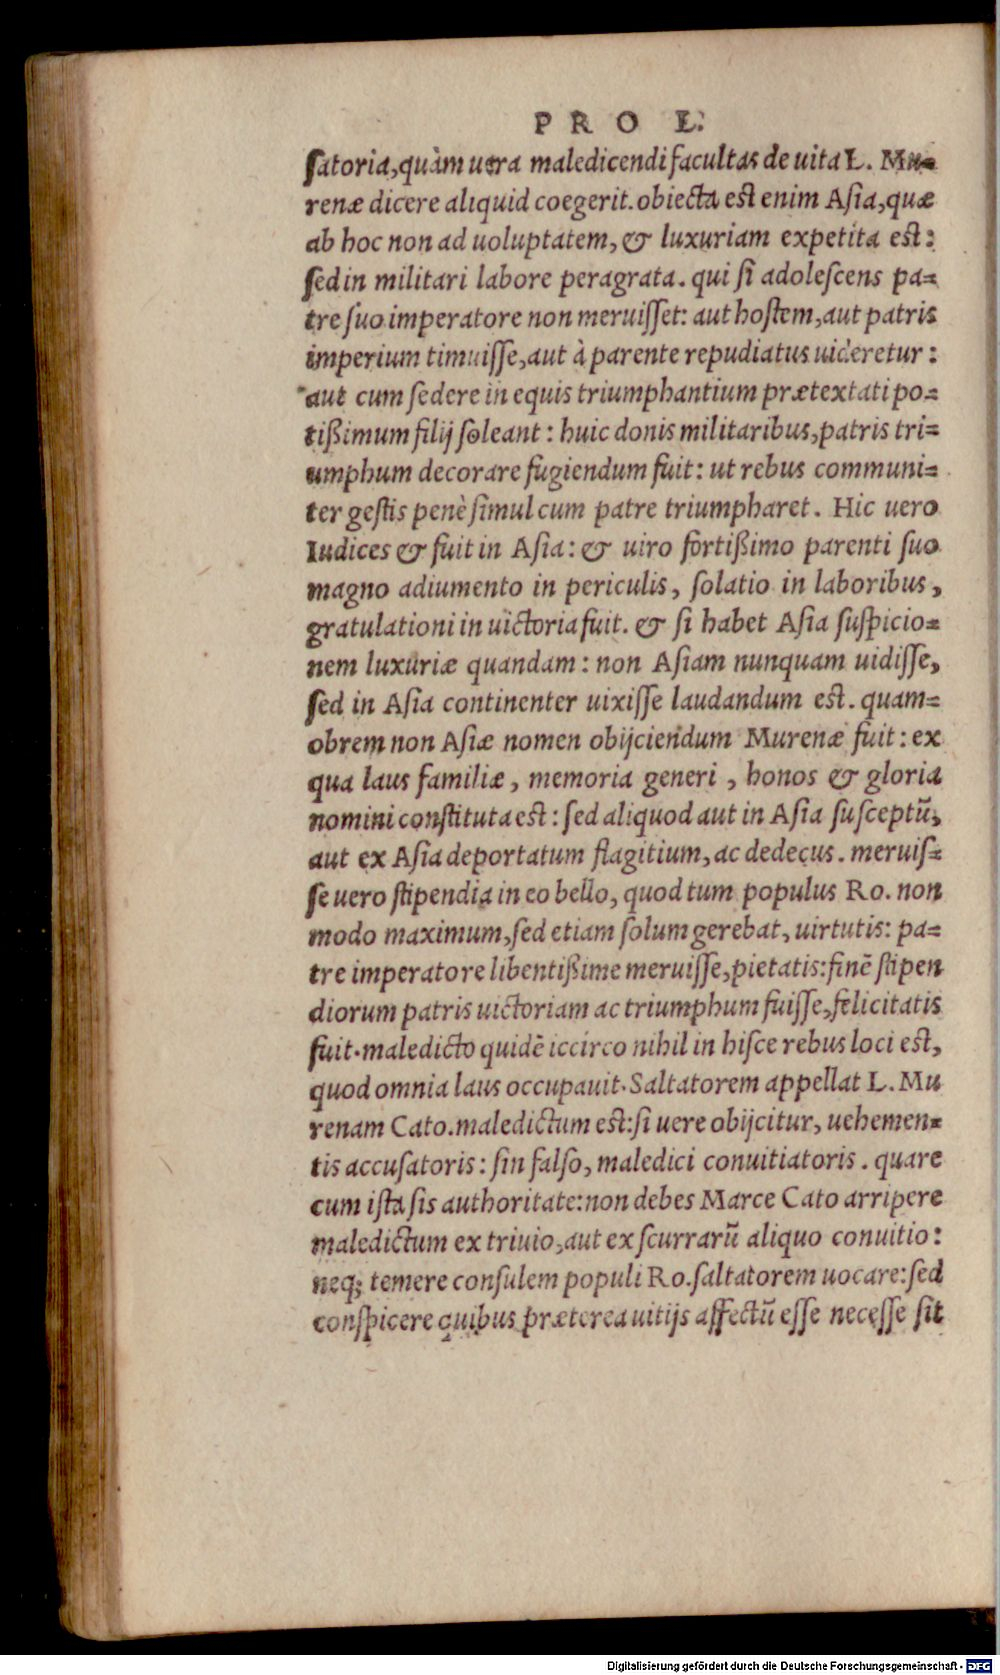 PRO L.
ſatoria, quàm uera maledicendi facultas de uita L. Mu-
renæ dicere aliquid coegerit. obiecta est enim Aſia, quæ
ab hoc non ad uoluptatem, & luxuriam expetita est:
ſed in militari labore peragrata. qui ſi adoleſcens pa-
tre ſuo imperatore non meruiſſet: aut hoſtem, aut patris
imperium timuiſſe, aut à parente repudiatus uideretur:
aut cum ſedere in equis triumphantium prætextati po-
tißimum filij ſoleant: huic donis militaribus, patris tri-
umphum decorare fugiendum fuit: ut rebus communi-
ter geſtis penè ſimul cum patre triumpharet. Hic uero
Iudices & fuit in Aſia: & uiro fortißimo parenti ſuo
magno adiumento in periculis, ſolatio in laboribus,
gratulationi in uictoria fuit. & ſi habet Aſia ſuſpicio-
nem luxuriæ quandam: non Aſiam nunquam uidiſſe,
ſed in Aſia continenter uixiſſe laudandum est. quam-
obrem non Aſiæ nomen obijciendum Murenæ fuit: ex
qua laus familiæ, memoria generi, honos & gloria
nomini conſtituta est: ſed aliquod aut in Aſia ſuſceptũ,
aut ex Aſia deportatum flagitium, ac dedecus. meruiſ-
ſe uero ſtipendia in eo bello, quod tum populus Ro. non
modo maximum, ſed etiam ſolum gerebat, uirtutis: pa-
tre imperatore libentißime meruiſſe, pietatis: finẽ ſtipen
diorum patris uictoriam ac triumphum fuiſſe, felicitatis
fuit. maledicto quidẽ iccirco nihil in hiſce rebus loci est,
quod omnia laus occupauit. Saltatorem appellat L. Mu
renam Cato. maledictum est: ſi uere obijcitur, uehemen-
tis accuſatoris: ſin falſo, maledici conuitiatoris. quare
cum iſta ſis authoritate: non debes Marce Cato arripere
maledictum ex triuio, aut ex ſcurrarũ aliquo conuitio:
neq; temere conſulem populi Ro. ſaltatorem uocare: ſed
conſpicere quibus præterea uitijs affectũ eſſe neceſſe ſit
Digitalisierung gefördert durch die Deutsche Forschungsgemeinschaft - DFG